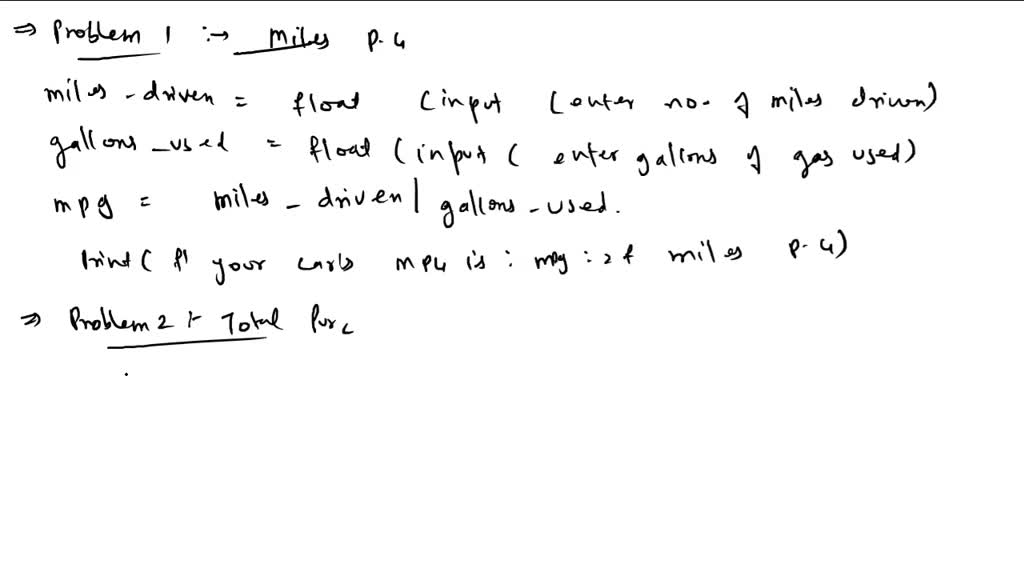 ⇒ Problem 1 :→ Miles P. G
miles - driven = float (input (enter no. of miles driven)
gallons _used = float (input ( enter gallons of gas used)
mpg = miles - driven | gallons - used.
print ( f' your carls MPG is : mpg : 2 f miles P. G)
⇒ Problem 2 :- Total Purc